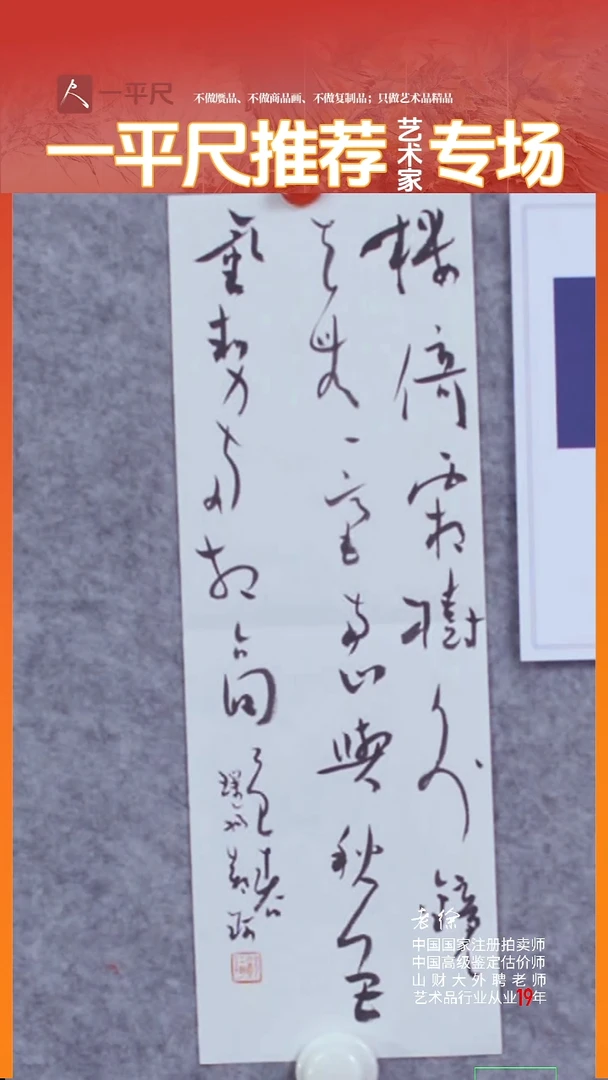 一平尺
不做赝品、不做商品画、不做复制品；只做艺术品精品
一平尺推荐艺术家专场
樓倚霜樹外鏡
天無一毫南山與秋色
氣勢兩相高
乙巳春
老徐
中国国家注册拍卖师
中国高级鉴定估价师
山财大外聘老师
艺术品行业从业19年